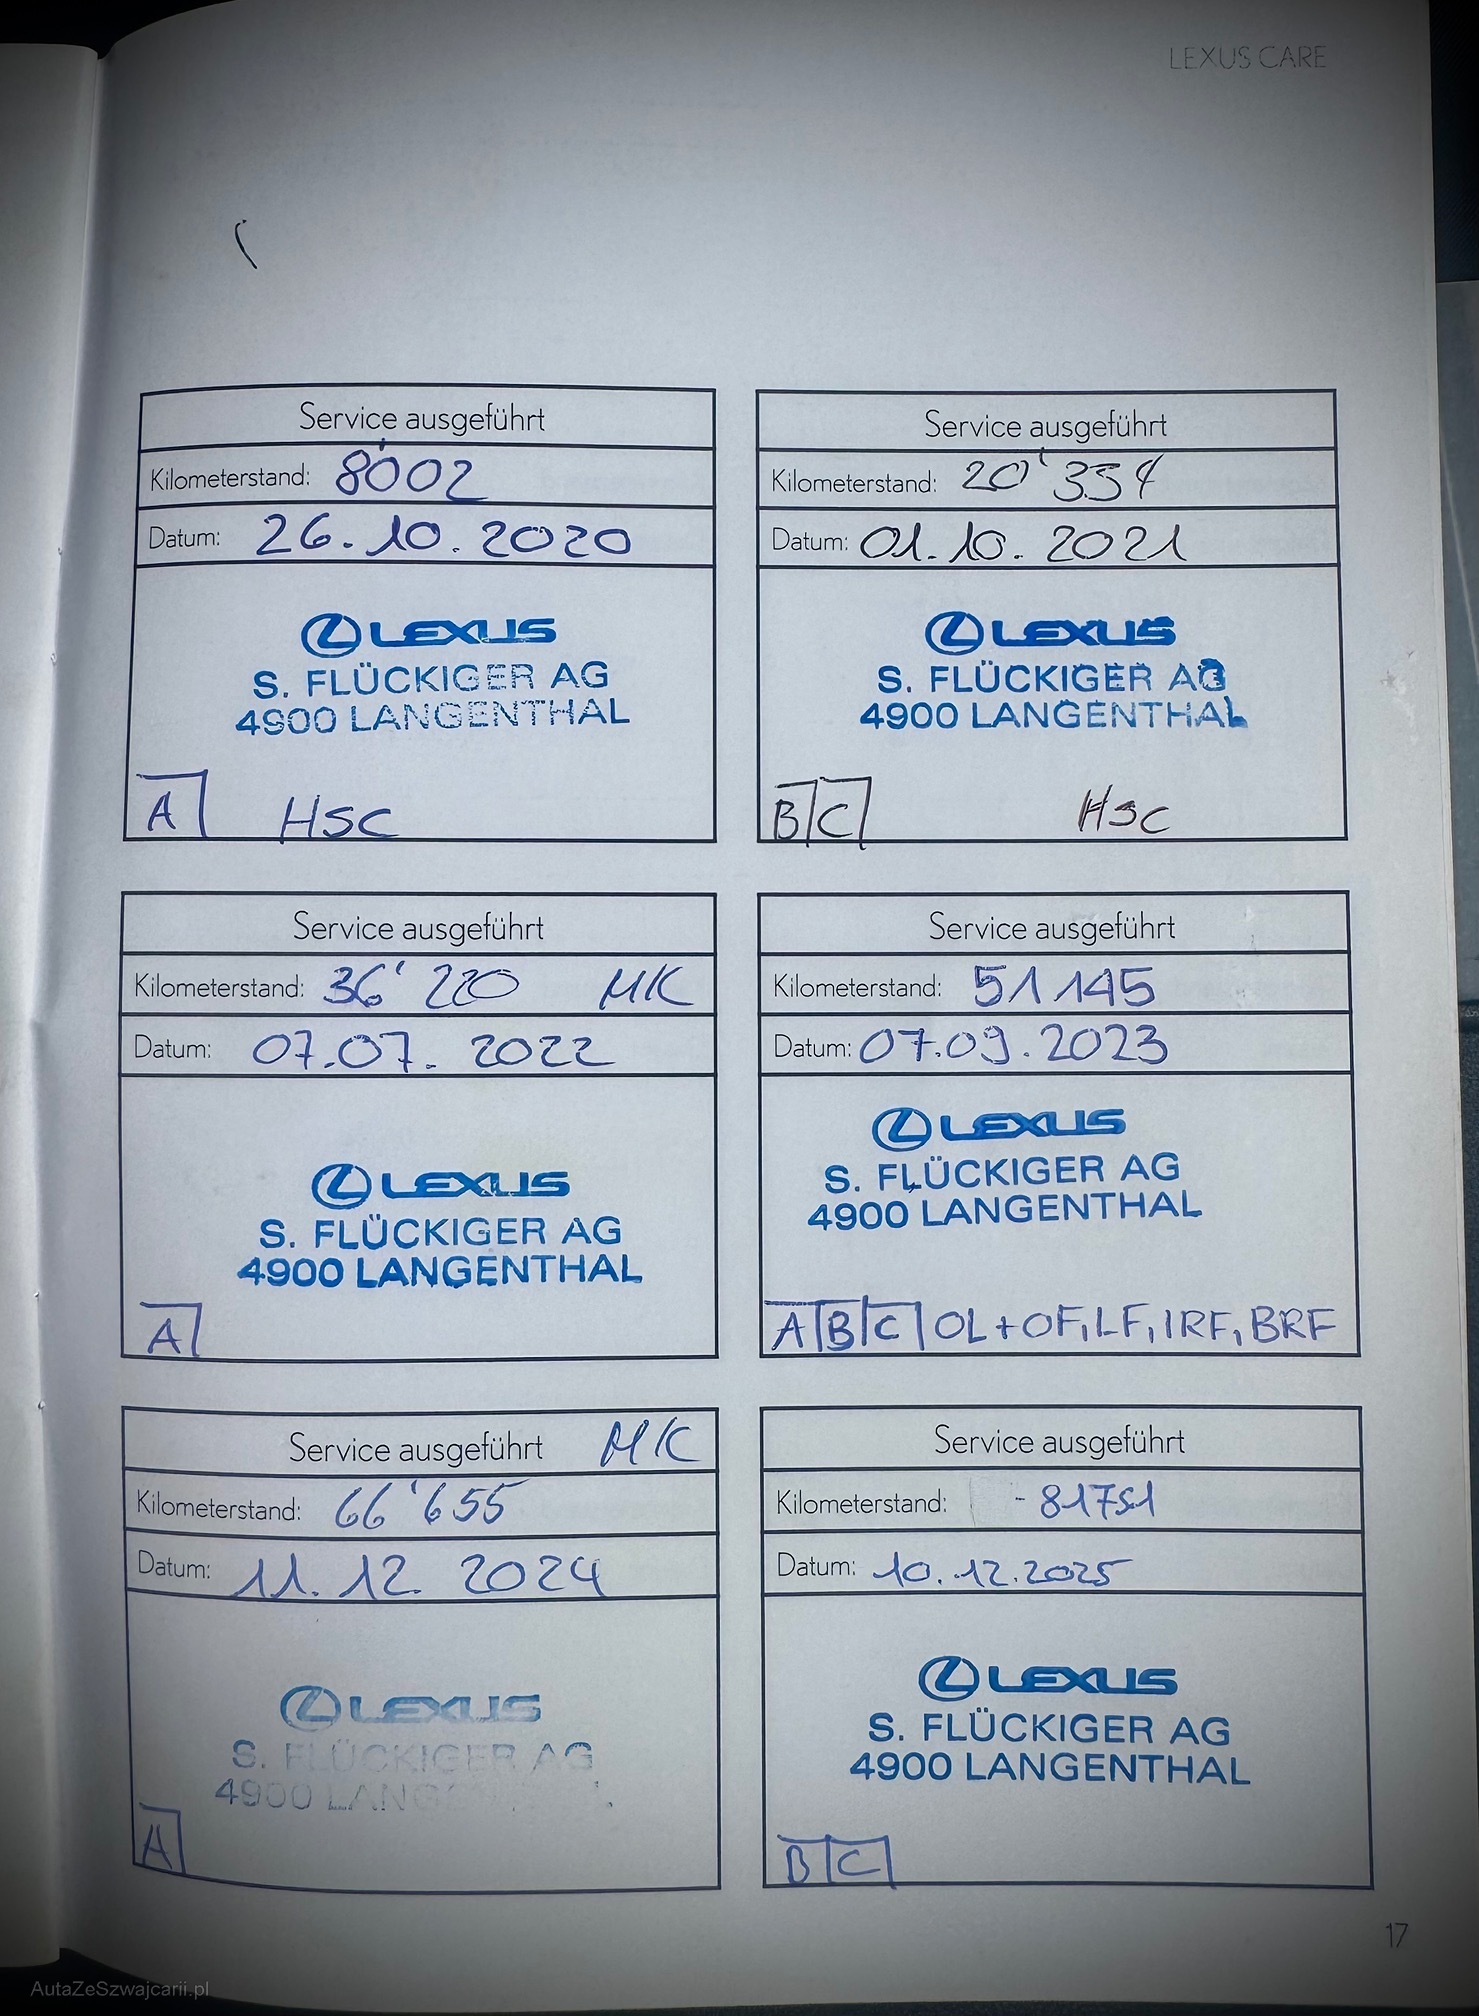 LEXUS CARE
Service ausgeführt
Kilometerstand: 8'002
Datum: 26.10.2020
LEXUS
S. FLÜCKIGER AG
4900 LANGENTHAL
A HSC
Service ausgeführt
Kilometerstand: 20'354
Datum: 01.10.2021
LEXUS
S. FLÜCKIGER AG
4900 LANGENTHAL
B C HSC
Service ausgeführt
Kilometerstand: 36'220 MK
Datum: 07.07.2022
LEXUS
S. FLÜCKIGER AG
4900 LANGENTHAL
A
Service ausgeführt
Kilometerstand: 51145
Datum: 07.09.2023
LEXUS
S. FLÜCKIGER AG
4900 LANGENTHAL
A B C OL+OF, LF, IRF, BRF
Service ausgeführt MK
Kilometerstand: 66'655
Datum: 11.12.2024
LEXUS
S. FLÜCKIGER AG
4900 LANG
A
Service ausgeführt
Kilometerstand: -81751
Datum: 10.12.2025
LEXUS
S. FLÜCKIGER AG
4900 LANGENTHAL
B C
17
AutaZeSzwajcarii.pl